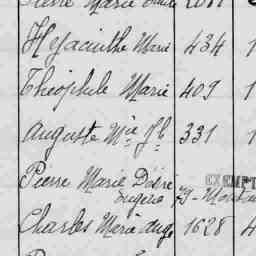 Pierre Marie
Hyacinthe Marie 434 1
Théophile Marie 409 1
Auguste Mie Jh 331 1
Pierre Marie Désiré EXEMPT
Eugène
Charles Marie Ange 1628 4